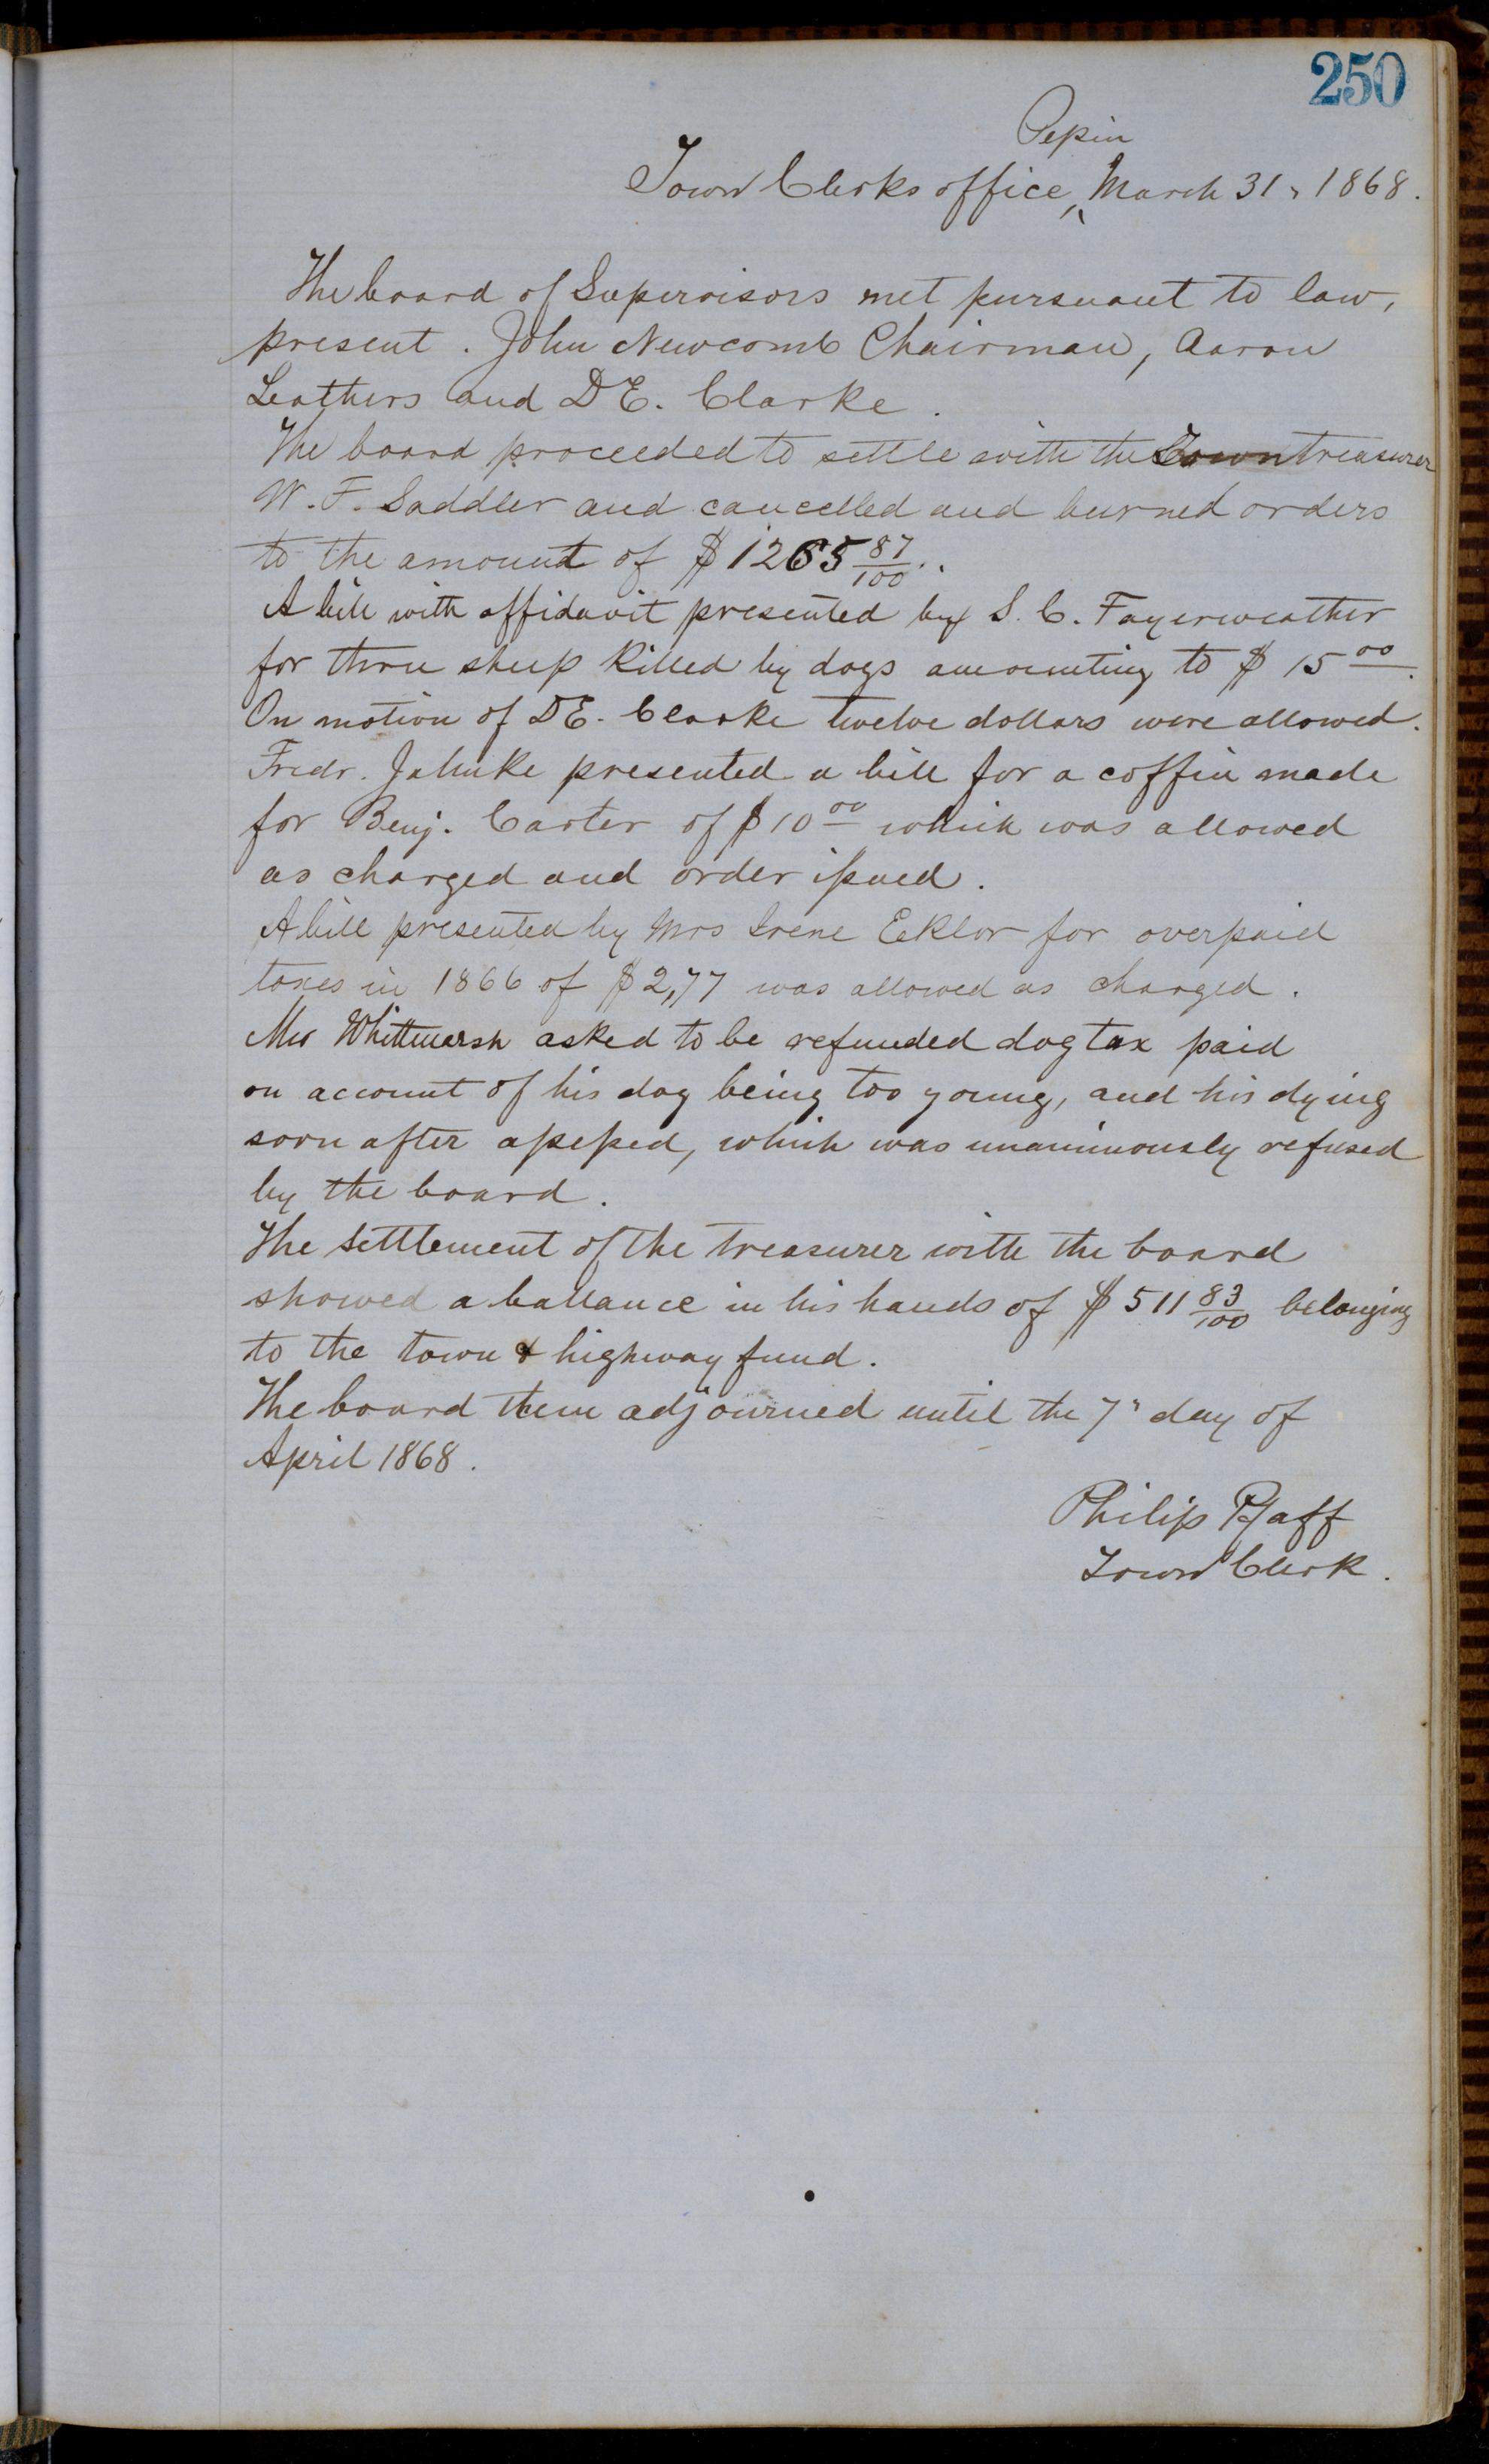 250
Pepin
Town Clerks office, March 31, 1868.
The board of Supervisors met pursuant to law,
present. John Newcomb Chairman, Aaron
Leathers and D E. Clarke.
The board proceeded to settle with the Town treasurer
W. F. Saddler and cancelled and burned orders
to the amount of $1265 87/100.
A bill with affidavit presented by S. C. Fayerweather
for three sheep killed by dogs amounting to $ 15 00.
On motion of D E. Clarke twelve dollars were allowed.
Fredr. Jahnke presented a bill for a coffin made
for Benj. Carter of $10 00 which was allowed
as charged and order issued.
A bill presented by Mrs Irene Eeklor for overpaid
taxes in 1866 of $2,77 was allowed as charged.
Whittmarsh asked to be refunded dog tax paid
on account of his dog being too young, and his dying
soon after assessed, which was unanimously refused
by the board.
The settlement of the treasurer with the board
showed a ballance in his hands of $ 511 83/100 belonging
to the town & highway fund.
The board then adjourned until the 7" day of
April 1868.
Philip Pfaff
Town Clerk.